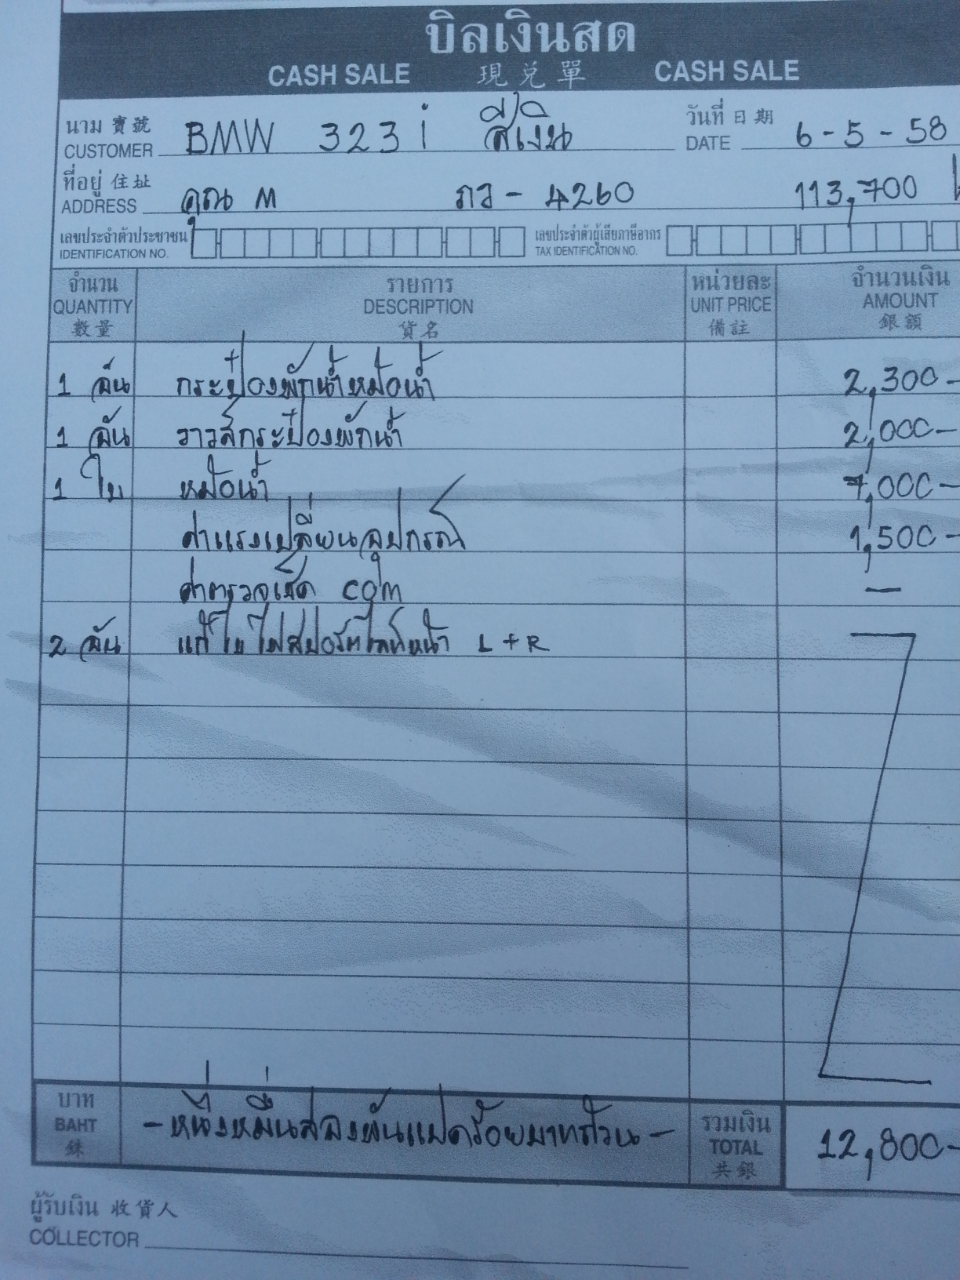 บิลเงินสด
CASH SALE 現兌單 CASH SALE
นาม 寶號 CUSTOMER BMW 323i สีเงิน วันที่ 日期 DATE 6-5-58
ที่อยู่ 住址 ADDRESS คุณ M ภว-4260 113,700
เลขประจำตัวประชาชน IDENTIFICATION NO. เลขประจำตัวผู้เสียภาษีอากร TAX IDENTIFICATION NO.
จำนวน รายการ หน่วยละ จำนวนเงิน
QUANTITY DESCRIPTION UNIT PRICE AMOUNT
數量 貨名 備註 銀額
1 อัน กระป๋องพักน้ำหม้อน้ำ 2,300-
1 อัน วาวล์กระป๋องพักน้ำ 2,000-
1 ใบ หม้อน้ำ 7,000-
ค่าแรงเปลี่ยนอุปกรณ์ 1,500-
ค่าตรวจเช็ค com —
2 อัน แก้ไขไฟสปอร์ตไลท์หน้า L+R
บาท BAHT 銖 -หนึ่งหมื่นสองพันแปดร้อยบาทถ้วน- รวมเงิน TOTAL 共銀 12,800-
ผู้รับเงิน 收貨人
COLLECTOR